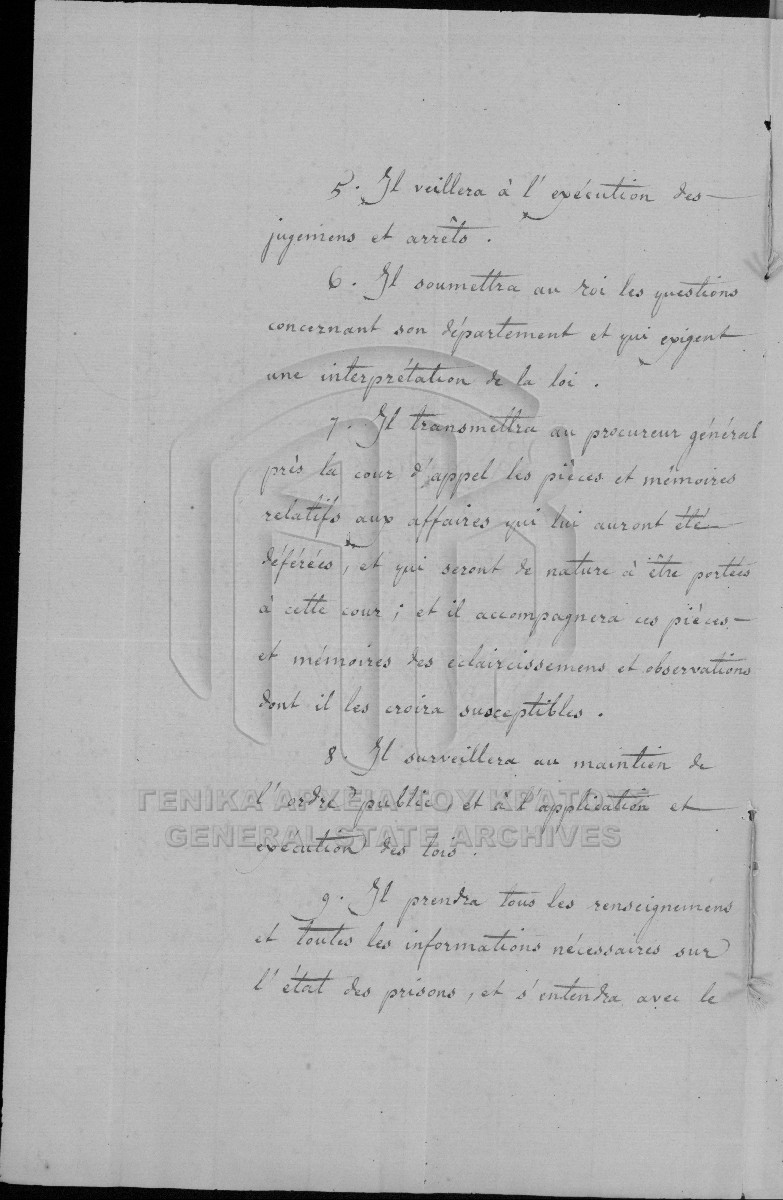 5. Il veillera à l'exécution des —
jugemens et arrêts.
6. Il soumettra au roi les questions
concernant son département et qui exigent
une interprétation de la loi.
7. Il transmettra au procureur général
près la cour d'appel les pièces et mémoires
relatifs aux affaires qui lui auront été —
déférées, et qui seront de nature à être portées
à cette cour; et il accompagnera ces pièces —
et mémoires des eclaircissemens et observations
dont il les croira susceptibles.
8. Il surveillera au maintien de
l'ordre public, et à l'application et —
ΓΕΝΙΚΑ ΑΡΧΕΙΑ ΤΟΥ ΚΡΑΤΟΥΣ
GENERAL STATE ARCHIVES
exécution des lois.
9. Il prendra tous les renseignemens
et toutes les informations nécessaires sur
l'état des prisons, et s'entendra avec le